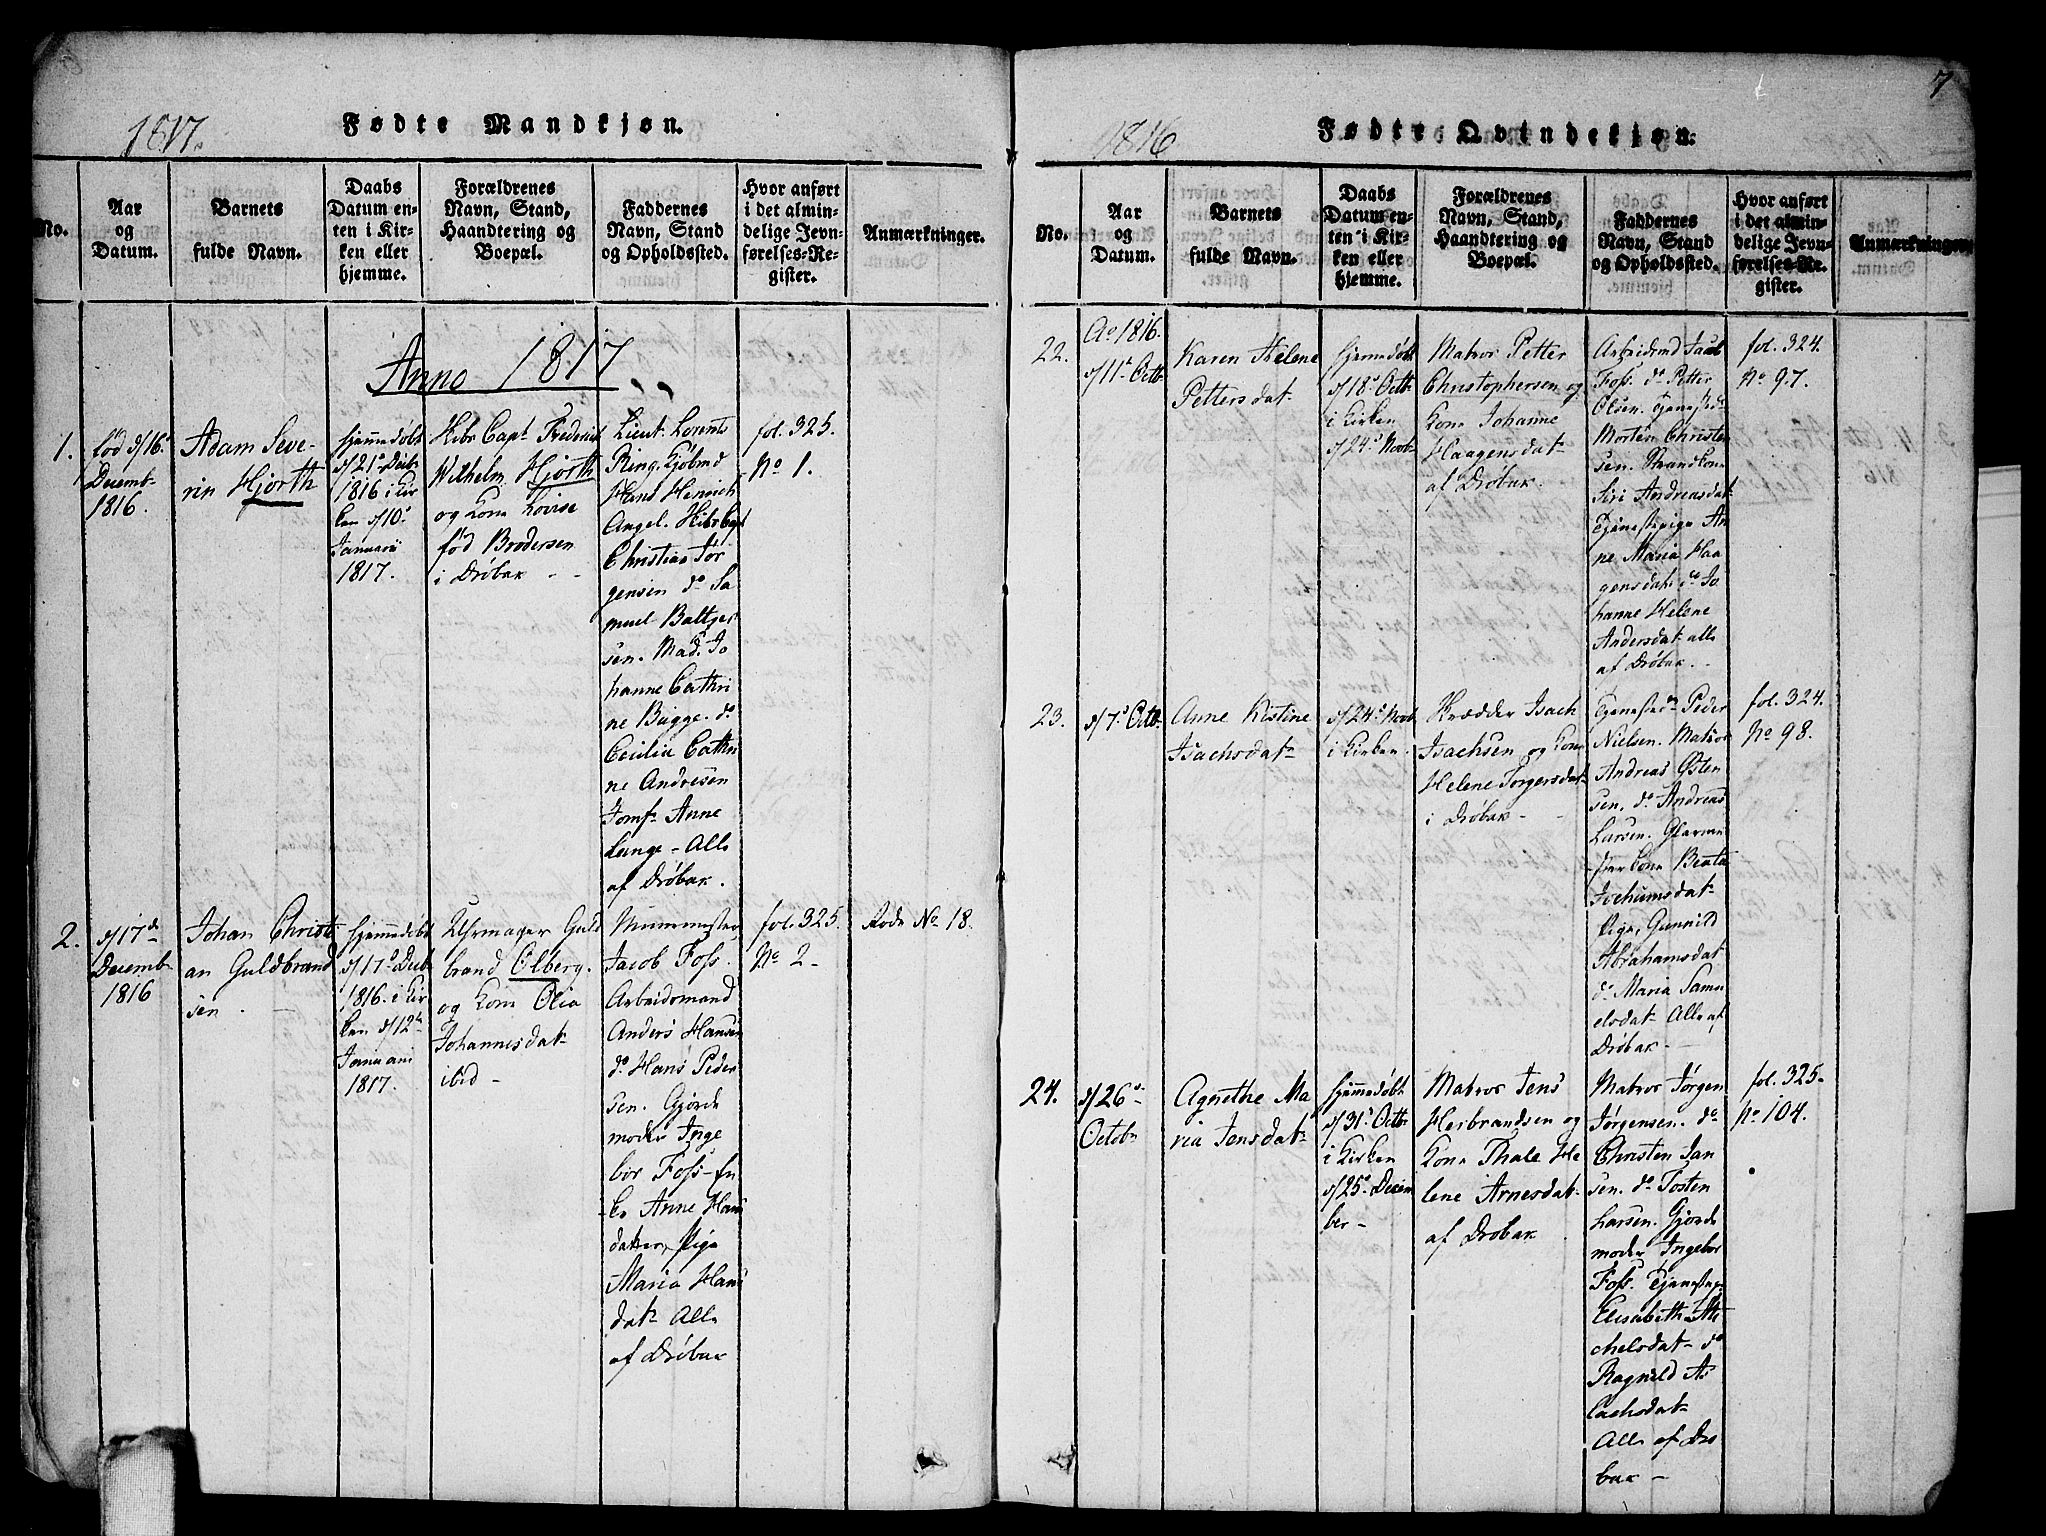 1817.
Fødte Mandkjøn.
No.
Aar
og
Datum.
Barnets
fulde Navn.
Daabs
Datum en-
ten i Kir-
ken eller
hjemme.
Forældrenes
Navn, Stand,
Haandtering og
Boepæl.
Faddernes
Navn, Stand
og Opholdssted.
Hvor anført
i det almin-
delige Jevn-
førelses-Re-
gister.
Anmærkninger.
Anno 1817
1.
fød d/16
Decemb
1816.
Adam Seve-
rin Hjorth
hjemmedøbt
d/21 Decb
1816 i Kir
ken d/10
Januarii
1817.
Skibs Capt Frederich
Wilhelm Hjorth
og Kone Lovise
fød Brodersen
i Drøbak
Lieut. Lorents
Ring. Kjøbmd
Hans Henrich
Angel. Skibscapt
Christian Jør
gensen do Sa
muel Baltzer
sen. Mad. Jo
hanne Cathri
ne Bugge. do
Cecilia Cathri
ne Andresen
Jomf. Anne
Lange - Alle
af Drøbak.
fol. 325.
No 1.
2.
d/17de
Decemb
1816
Johan Christi
an Guldbrand
sen
hjemmedøbt
d/17 Decb
1816. i Kir
ken d/12
Januarii
1817.
Uhrmager Guld
brand Olberg.
og Kone Olia
Johannesdat
ibid -
Muurmester
Jacob Foss.
Arbeidsmand
Anders Hansen
do Hans Peder
sen. Gjorde
moder Inge
bor Foss - En
ke Anne Hans
datter, Pige
Maria Hans
dat Alle
af Drøbak
fol. 325.
No 2 -
Rode No 18.
7
1816
Fødte Qvindekjøn.
No.
Aar
og
Datum.
Barnets
fulde Navn.
Daabs
Datum en-
ten i Kir-
ken eller
hjemme.
Forældrenes
Navn, Stand,
Haandtering og
Boepæl.
Faddernes
Navn, Stand
og Opholdssted.
Hvor anført
i det almin-
delige Jevn-
førelses-Re-
gister.
Anmærkninger
22.
Ao 1816.
d/11 Octb
Karen Helene
Pettersdat
hjemmedøbt
d/18 Octb
i Kirken
d/24 Novb
Matros Petter
Christophersen og
Kone Johanne
Haagensdat
af Drøbak.
Arbeidsmd Jacob
Foss. do Petter
Olsen. Tjenestedr
Morten Christen
sen. Strandkone
Siri Andreasdat
Tjenestepige An
ne Maria Haa
gensdat do Jo
hanne Helene
Andersdat alle
af Drøbak.
fol. 324.
No 97.
23.
d/7 Octb
Anne Kistine
Isachsdat
d/24 Novb
i Kirken.
Skrædder Isach
Isachsen og Kone
Helene Torgersdat
i Drøbak -
Tjenestedr Peder
Nielsen. Matros
Andreas Osten
sen. do Andreas
Larsen. Glarme
ster Kone Beata
Jochumsdat
Pige, Gunnild
Abrahamsdat
do Maria Samu
elsdat Alle af
Drøbak -
fol. 324.
No 98.
24.
d/26
Octobr
Agnethe Ma
ria Jensdat
hjemmedøbt
d/31 Octb
i Kirken
d/25 Decem
ber -
Matros Jens
Herbrandsen og
Kone Thale He
lene Arnesdat
af Drøbak
Matros Jørgen
Jørgensen. do
Christen Jan
sen. do Tosten
Larsen. Gjorde
moder Ingebor
Foss. Tjenestepige
Elisabeth Mi
chelsdat do
Ragnild As
lachsdat
Alle af Drø
bak -
fol. 325.
No 104.